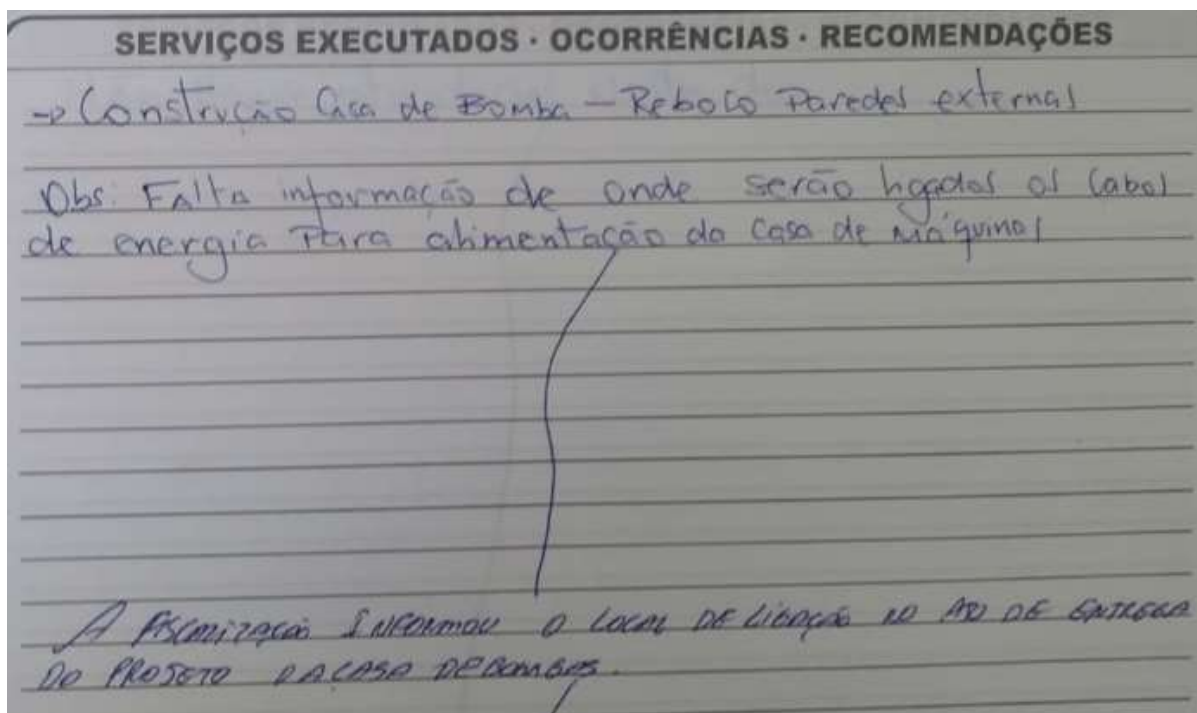 SERVIÇOS EXECUTADOS · OCORRÊNCIAS · RECOMENDAÇÕES
→ Construção Casa de Bomba — Reboco Paredes externas
Obs: Falta informação de onde serão ligados os Cabos
de energia Para alimentação da Casa de Máquinas
A FISCALIZAÇÃO INFORMOU O LOCAL DE LIGAÇÃO NO ATO DE ENTREGA
DO PROJETO DA CASA DE BOMBAS.